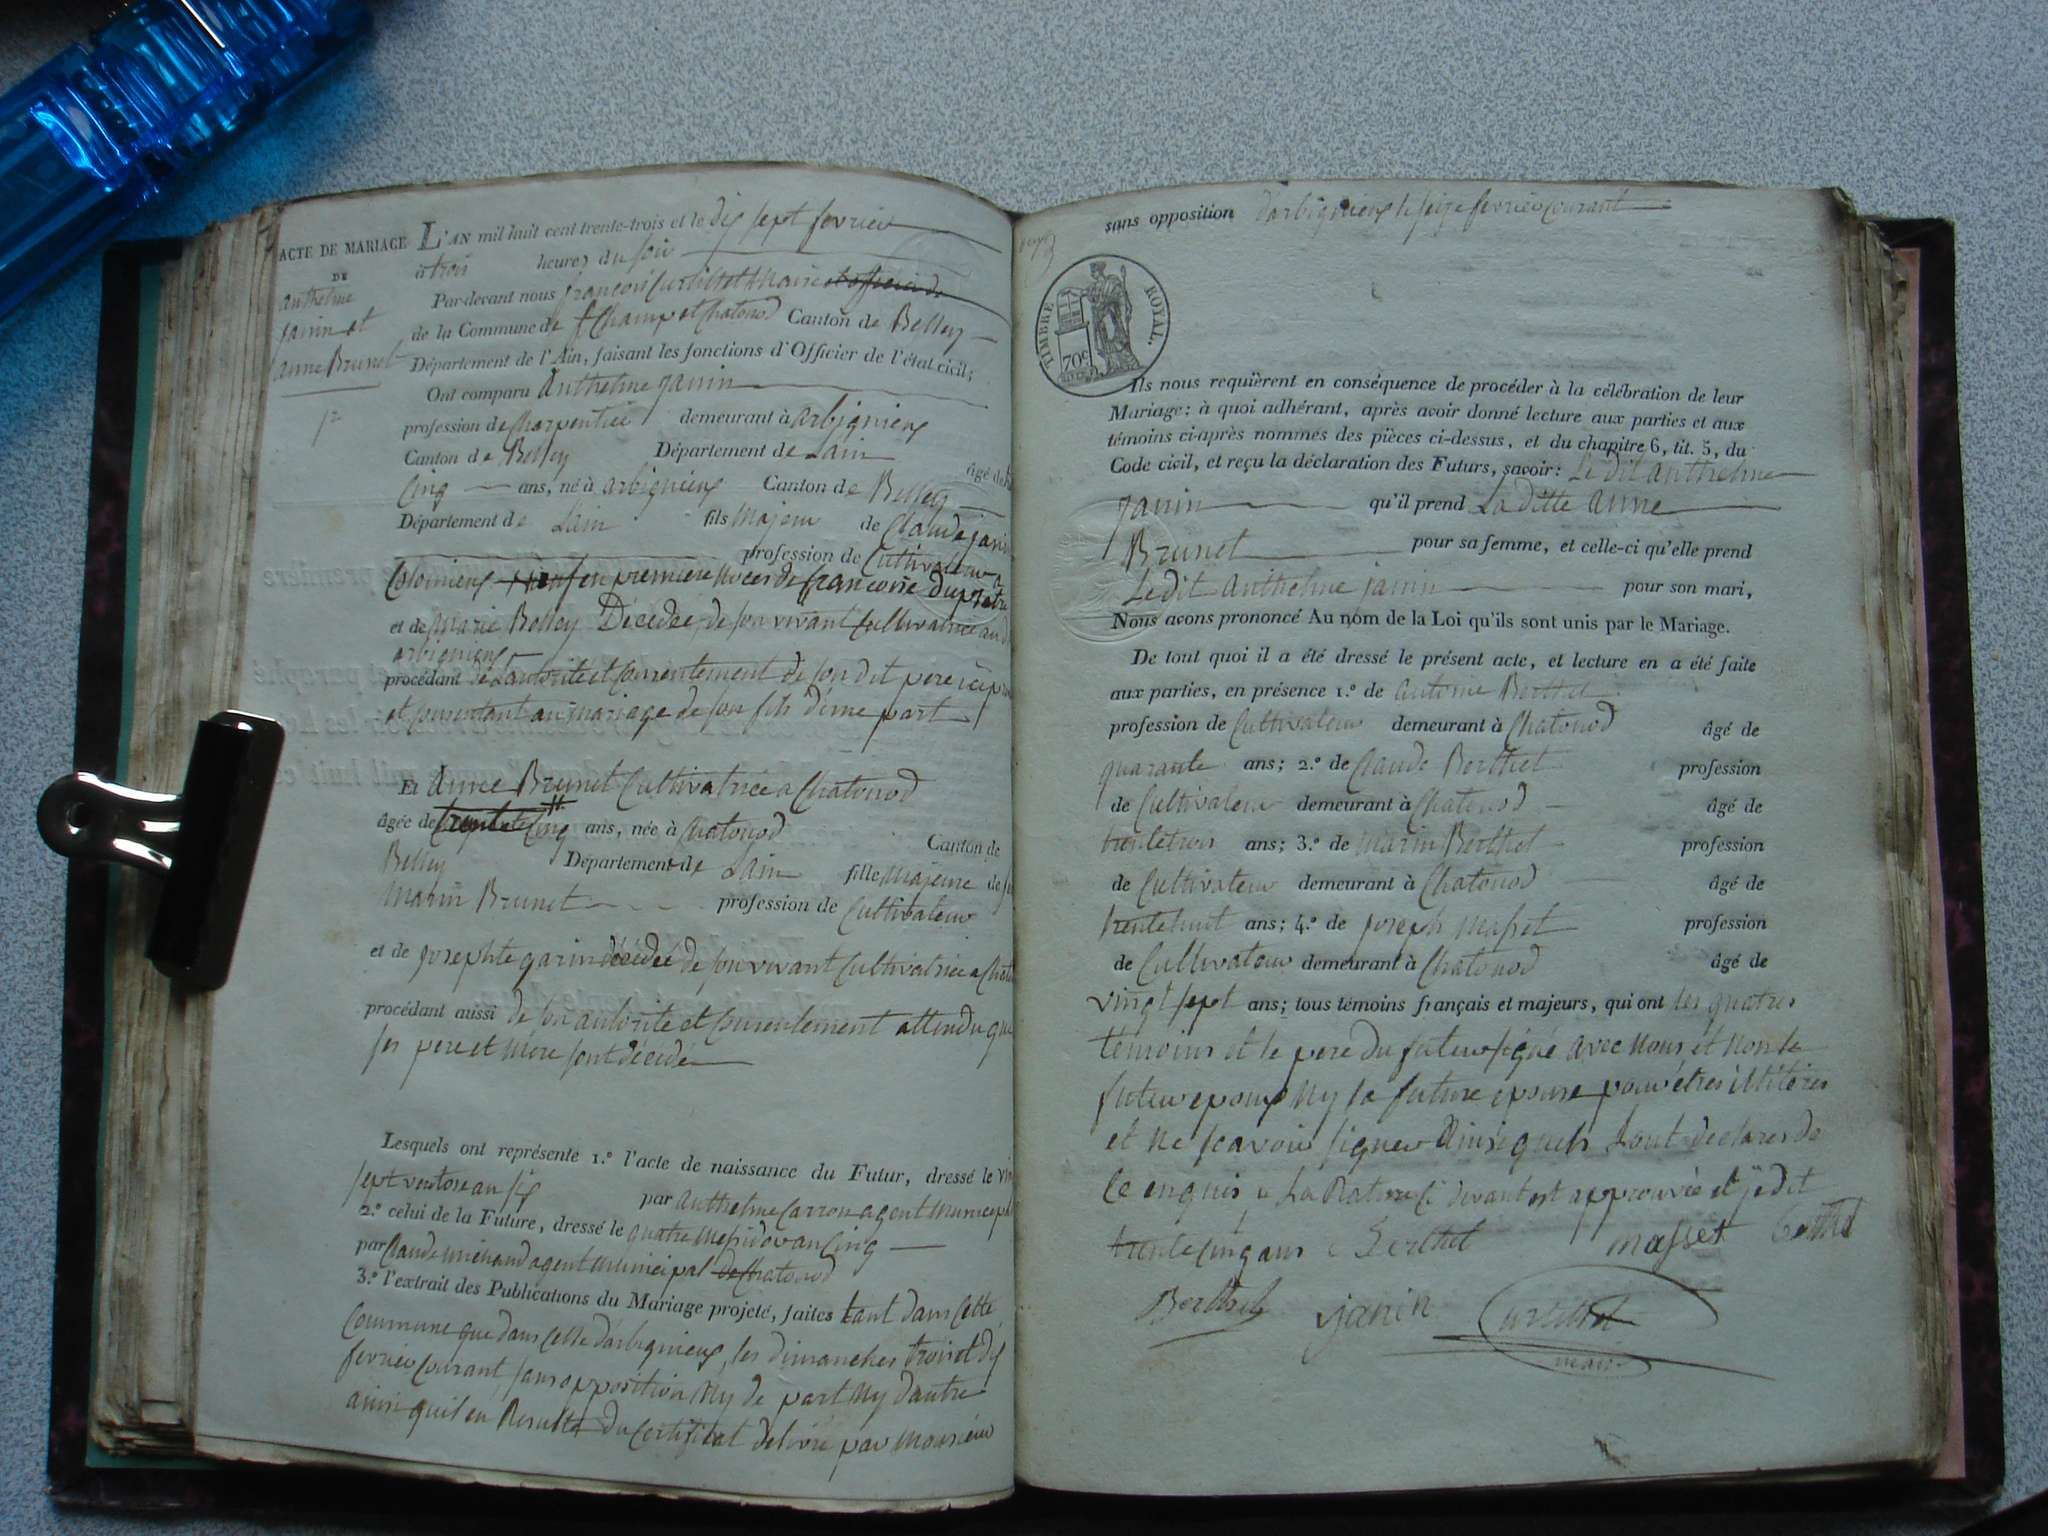 ACTE DE MARIAGE
DE
anthelme
janin et
anne Brunet
1r
L'AN mil huit cent trente-trois et le dix sept fevrier
à trois heures du soir
Par-devant nous françois Curtillet Maire et officier de
de la Commune de st Champ et Chatonod Canton de Belley
Département de l'Ain, faisant les fonctions d'Officier de l'état civil;
Ont comparu anthelme janin
profession de Charpentier demeurant à arbignieu
Canton de Belley Département de Lain âgé de
Cinq ans, né à arbignieu Canton de Belley
Département de Lain fils Majeur de Claude janin
profession de Cultivateur a
Colomieu veuf en premiere noces de francoise
et de Marie Belley Décédée, de son vivant Cultivatrice au dit
arbignieu
procédant de L'autorité et consentement de son dit pere ici
et consentant au mariage de son fils d'une part
Et anne Brunet Cultivatrice a Chatonod
âgée de trente Cinq ans, née à Chatonod Canton de
Belley Département de Lain fille Majeure de
Marin Brunet profession de Cultivateur
et de josephte garin décédée de son vivant Cultivatrice a
procédant aussi de son autorité et consentement attendu que
ses pere et mere sont décédés
Lesquels ont représenté 1.° l'acte de naissance du Futur, dressé le
sept ventose an six par anthelme Carron agent municipal
2.° celui de la Future, dressé le quatre Messidor an Cinq
par Claude agent municipal de Chatonod
3.° l'extrait des Publications du Mariage projeté, faites tant dans Cette
Commune que dans Celle d'arbignieu, les dimanches trois et dix
fevrier Courant sans opposition Ny de part Ny d'autre
ainsi quil en Resulte du Certificat delivré par monsieur
sans opposition d'arbignieu le seize fevrier Courant
TIMBRE ROYAL.
70c
Ils nous requièrent en conséquence de procéder à la célébration de leur
Mariage; à quoi adhérant, après avoir donné lecture aux parties et aux
témoins ci-après nommés des pièces ci-dessus, et du chapitre 6, tit. 5, du
Code civil, et reçu la déclaration des Futurs, savoir: Le dit anthelme
janin qu'il prend La ditte anne
Brunet pour sa femme, et celle-ci qu'elle prend
Le dit anthelme janin pour son mari,
Nous avons prononcé Au nom de la Loi qu'ils sont unis par le Mariage.
De tout quoi il a été dressé le présent acte, et lecture en a été faite
aux parties, en présence 1.° de antoine Berthet
profession de Cultivateur demeurant à Chatonod âgé de
quarante ans; 2.° de Claude Berthet profession
de Cultivateur demeurant à Chatonod âgé de
trente trois ans; 3.° de Marin Berthet profession
de Cultivateur demeurant à Chatonod âgé de
trente huit ans; 4.° de joseph Masset profession
de Cultivateur demeurant à Chatonod âgé de
vingt sept ans; tous témoins français et majeurs, qui ont les quatres
témoins et le pere du futeur signé avec Nous, et Non le
futeur epoux Ny la future epouse pour êtres illitéres
et ne scavoir signer ainsi quils L'ont declares de
ce enquis La Rature Ci devant est approuvée et y dit
trente cinq ans Berthet masset Berthet
Berthet janin Curtillet
maire